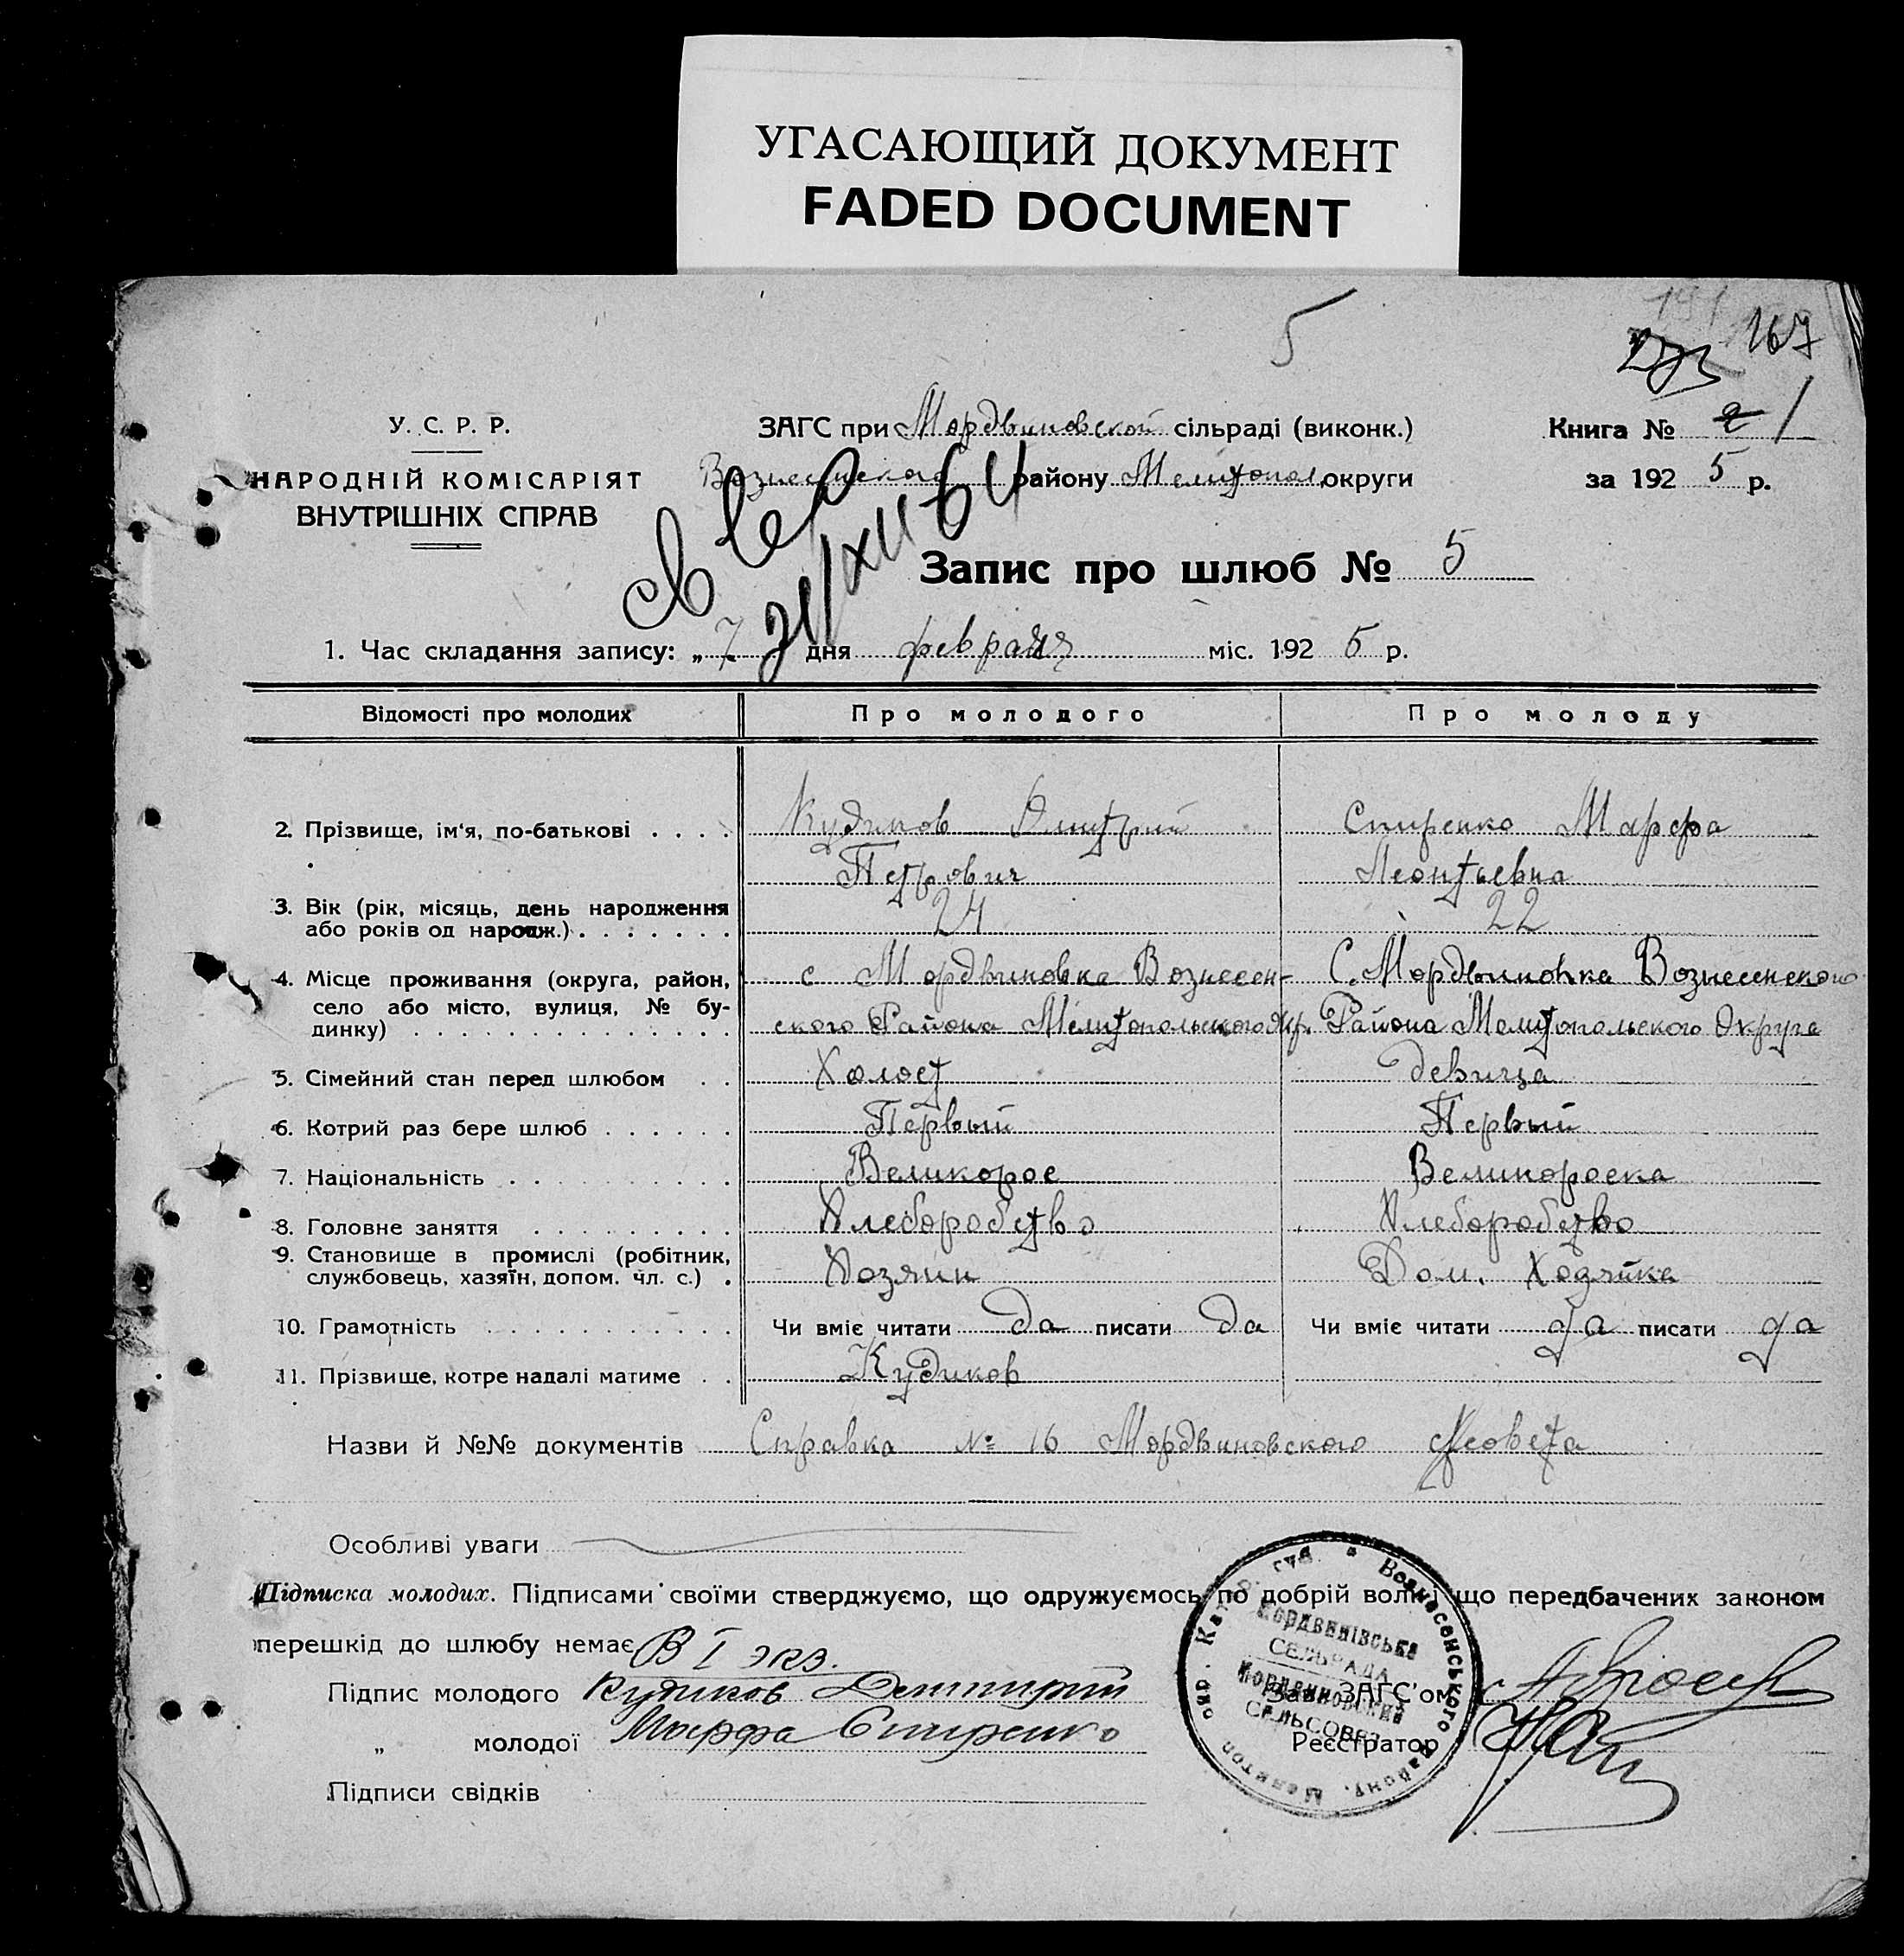 УГАСАЮЩИЙ ДОКУМЕНТ
FADED DOCUMENT
5
167
У. С. Р. Р.
НАРОДНІЙ КОМІСАРІЯТ
ВНУТРІШНІХ СПРАВ
ЗАГС при Мордвиновской сільраді (виконк.)
Вознесенского району Мелитопол. округи
Книга № 2 1
за 1925 р.
Запис про шлюб № 5
1. Час складання запису: „7" дня февраля міс. 1925 р.
Відомості про молодих Про молодого Про молоду
2. Прізвище, ім'я, по-батькові . . . . Кудинов Дмитрий Спиренко Марфа
Петрович Леонтьевна
3. Вік (рік, місяць, день народження
або років од народж.) . . . . . . . 24 22
4. Місце проживання (округа, район, с Мордвиновка Вознесен- С. Мордвиновка Вознесенского
село або місто, вулиця, № бу-
динку) ского Района Мелитопольского Окр. Района Мелитопольского Округа
5. Сімейний стан перед шлюбом . . Холост девица
6. Котрий раз бере шлюб . . . . . . Первый Первый
7. Національність . . . . . . . . . . Великорос Великороска
8. Головне заняття . . . . . . . . . Хлеборобство Хлеборобство
9. Становище в промислі (робітник,
службовець, хазяїн, допом. чл. с.) . Хозяин Дом. Хозяйка
10. Грамотність . . . . . . . . . . . Чи вміє читати да писати да Чи вміє читати да писати да
11. Прізвище, котре надалі матиме . . Кудинов
Назви й №№ документів Справка № 16 Мордвиновского с/совета
Особливі уваги
Підписка молодих. Підписами своїми стверджуємо, що одружуємось по добрій волі і що передбачених законом
перешкід до шлюбу немає. В I экз.
Підпис молодого Кудинов Дмитрий
„ молодої Марфа Спиренко
Підписи свідків
Зав. ЗАГС'ом
Реєстратор
Вознесенського Району, Мелитоп. окр. Кат. губ.
Мордвинівська
СЕЛЬРАДА
Мордвиновский
СЕЛЬСОВЕТ